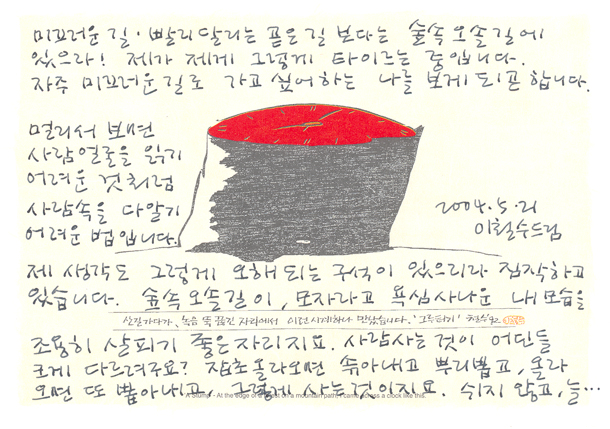 미끄러운 길·빨리 달리는 곧은 길 보다는 숲속 오솔길에
있으라! 제가 제게 그렇게 타이르는 중입니다.
자주 미끄러운 길로 가고 싶어하는 나를 보게 되곤 합니다.
멀리서 보면
사람 얼굴을 읽기
어려운 것처럼
사람 속을 다 알기
어려운 법입니다.
2004. 5. 21
이철수 드림
제 생각도 그렇게 오해되는 구석이 있으리라 짐작하고
있습니다. 숲속 오솔길이, 모자라고 욕심 사나운 내 모습을
산길 가다가, 숲을 뚝 끊긴 자리에서 이런 시계 하나 만났습니다. '그루터기' 철수 92
조용히 살피기 좋은 자리지요. 사람 사는 것이 어딘들
크게 다르려구요? 잡초 올라오면 솎아내고 뿌리뽑고, 올라
오면 또 뽑아내고, 그렇게 사는 것이지요. 쉬지 않고, 늘…
A Stump - At the edge of a forest on a mountain path, I came across a clock like this.